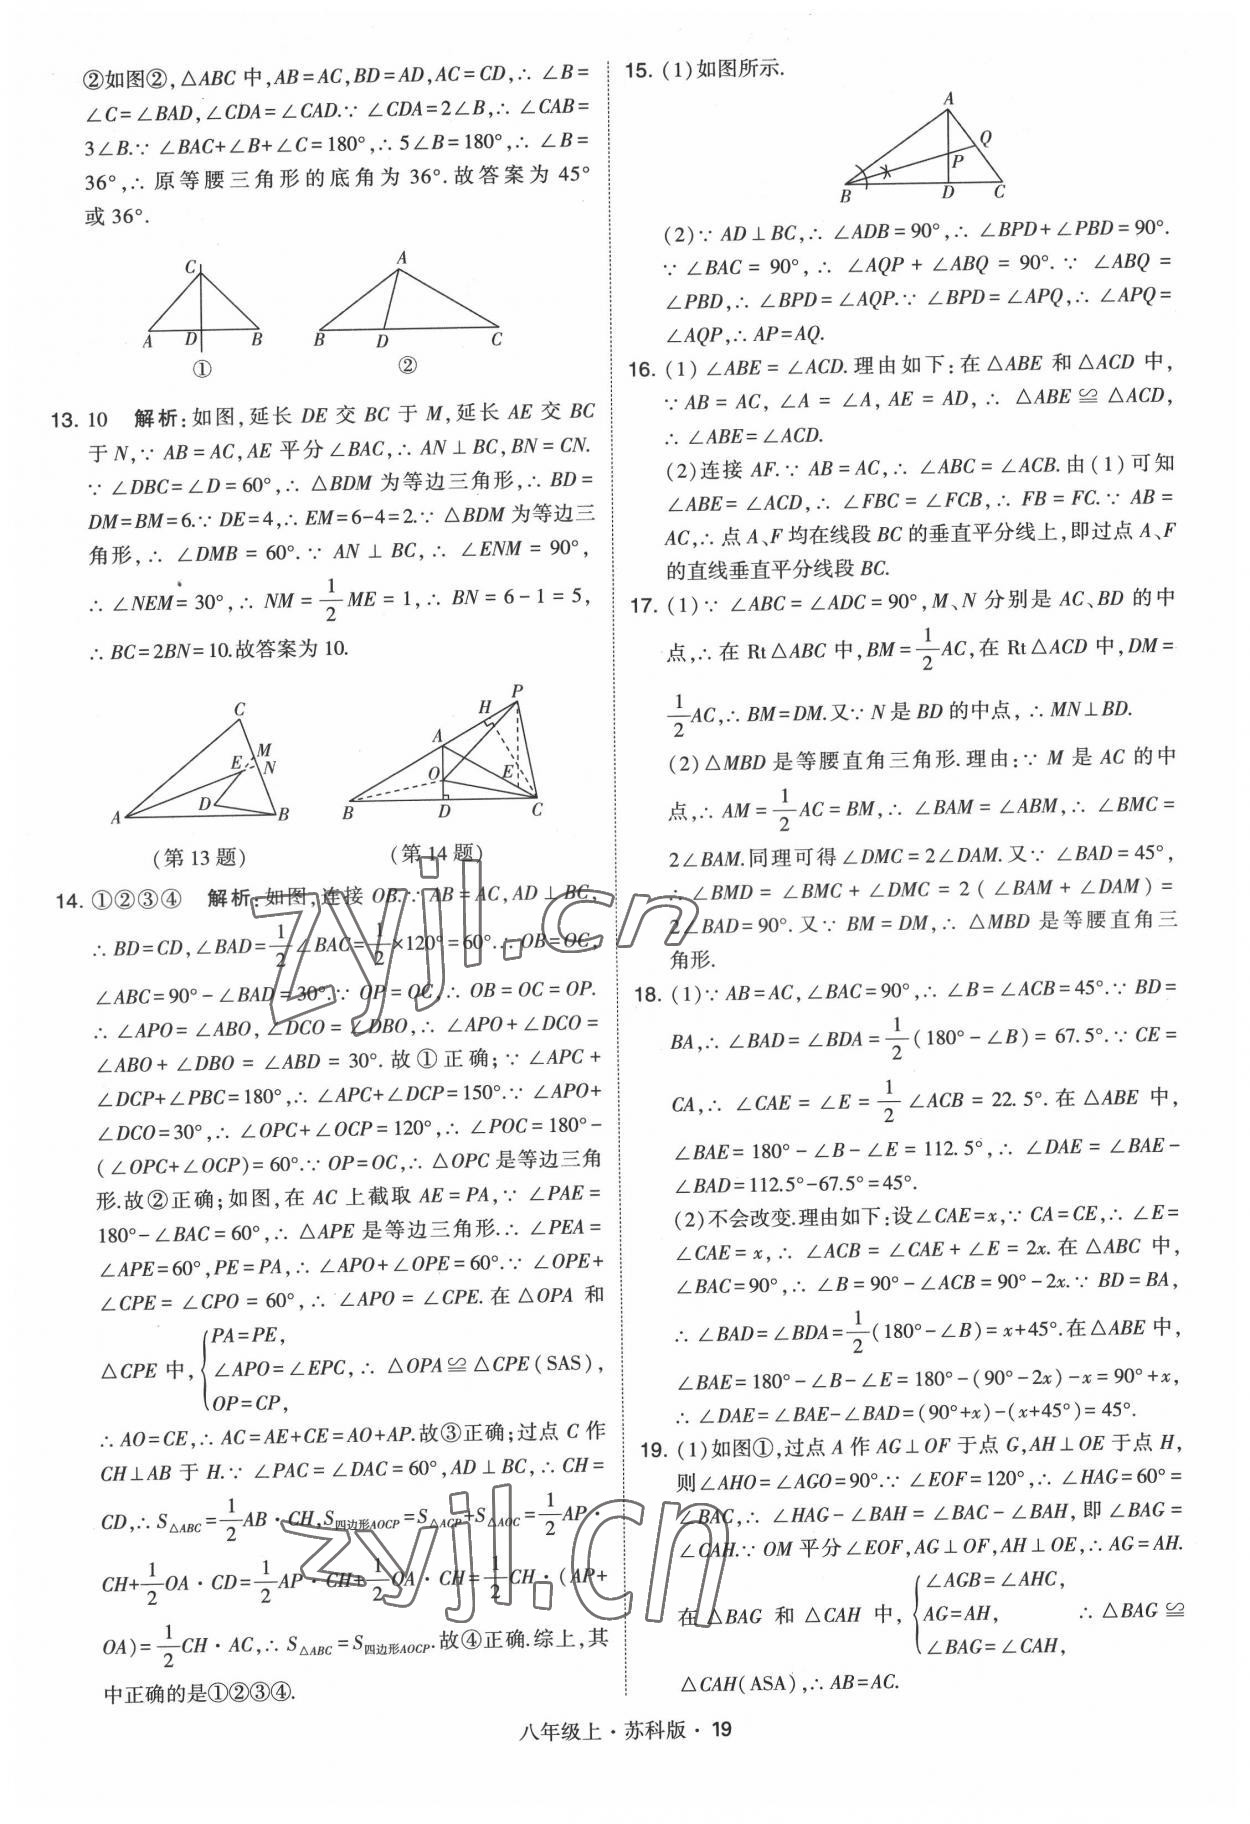 ②如图②,△ABC中,AB=AC,BD=AD,AC=CD,∴∠B=
∠C=∠BAD,∠CDA=∠CAD.∵∠CDA=2∠B,∴∠CAB=
3∠B.∵∠BAC+∠B+∠C=180°,∴5∠B=180°,∴∠B=
36°,∴原等腰三角形的底角为36°.故答案为45°
或36°.
C
A D B
①
A
B D C
②
13. 10 解析:如图,延长DE交BC于M,延长AE交BC
于N,∵AB=AC,AE平分∠BAC,∴AN⊥BC,BN=CN.
∵∠DBC=∠D=60°,∴△BDM为等边三角形,∴BD=
DM=BM=6.∵DE=4,∴EM=6-4=2.∵△BDM为等边三
角形,∴∠DMB=60°.∵AN⊥BC,∴∠ENM=90°,
∴∠NEM=30°,∴NM=1/2ME=1,∴BN=6-1=5,
∴BC=2BN=10.故答案为10.
C
M
E N
D
A B
(第13题)
P
H
A
O E
B D C
(第14题)
14. ①②③④ 解析:如图,连接OB.∵AB=AC,AD⊥BC,
∴BD=CD,∠BAD=1/2∠BAC=1/2×120°=60°.∴OB=OC,
∠ABC=90°-∠BAD=30°.∵OP=OC,∴OB=OC=OP.
∴∠APO=∠ABO,∠DCO=∠DBO,∴∠APO+∠DCO=
∠ABO+∠DBO=∠ABD=30°.故①正确;∵∠APC+
∠DCP+∠PBC=180°,∴∠APC+∠DCP=150°.∵∠APO+
∠DCO=30°,∴∠OPC+∠OCP=120°,∴∠POC=180°-
(∠OPC+∠OCP)=60°.∵OP=OC,∴△OPC是等边三角
形.故②正确;如图,在AC上截取AE=PA,∵∠PAE=
180°-∠BAC=60°,∴△APE是等边三角形.∴∠PEA=
∠APE=60°,PE=PA,∴∠APO+∠OPE=60°.∵∠OPE+
∠CPE=∠CPO=60°,∴∠APO=∠CPE.在△OPA和
△CPE中,{PA=PE,
∠APO=∠EPC,∴△OPA≌△CPE(SAS),
OP=CP,
∴AO=CE,∴AC=AE+CE=AO+AP.故③正确;过点C作
CH⊥AB于H.∵∠PAC=∠DAC=60°,AD⊥BC,∴CH=
CD,∴S△ABC=1/2AB·CH,S四边形AOCP=S△ACP+S△AOC=1/2AP·
CH+1/2OA·CD=1/2AP·CH+1/2OA·CH=1/2CH·(AP+
OA)=1/2CH·AC,∴S△ABC=S四边形AOCP.故④正确.综上,其
中正确的是①②③④.
15. (1)如图所示.
A
Q
P
B D C
(2)∵AD⊥BC,∴∠ADB=90°,∴∠BPD+∠PBD=90°.
∵∠BAC=90°,∴∠AQP+∠ABQ=90°.∵∠ABQ=
∠PBD,∴∠BPD=∠AQP.∵∠BPD=∠APQ,∴∠APQ=
∠AQP,∴AP=AQ.
16. (1)∠ABE=∠ACD.理由如下:在△ABE和△ACD中,
∵AB=AC,∠A=∠A,AE=AD,∴△ABE≌△ACD,
∴∠ABE=∠ACD.
(2)连接AF.∵AB=AC,∴∠ABC=∠ACB.由(1)可知
∠ABE=∠ACD,∴∠FBC=∠FCB,∴FB=FC.∵AB=
AC,∴点A、F均在线段BC的垂直平分线上,即过点A、F
的直线垂直平分线段BC.
17. (1)∵∠ABC=∠ADC=90°,M、N分别是AC、BD的中
点,∴在Rt△ABC中,BM=1/2AC,在Rt△ACD中,DM=
1/2AC,∴BM=DM.又∵N是BD的中点,∴MN⊥BD.
(2)△MBD是等腰直角三角形.理由:∵M是AC的中
点,∴AM=1/2AC=BM,∴∠BAM=∠ABM,∴∠BMC=
2∠BAM.同理可得∠DMC=2∠DAM.又∵∠BAD=45°,
∴∠BMD=∠BMC+∠DMC=2(∠BAM+∠DAM)=
2∠BAD=90°.又∵BM=DM,∴△MBD是等腰直角三
角形.
18. (1)∵AB=AC,∠BAC=90°,∴∠B=∠ACB=45°.∵BD=
BA,∴∠BAD=∠BDA=1/2(180°-∠B)=67.5°.∵CE=
CA,∴∠CAE=∠E=1/2∠ACB=22.5°.在△ABE中,
∠BAE=180°-∠B-∠E=112.5°,∴∠DAE=∠BAE-
∠BAD=112.5°-67.5°=45°.
(2)不会改变.理由如下:设∠CAE=x,∵CA=CE,∴∠E=
∠CAE=x,∴∠ACB=∠CAE+∠E=2x.在△ABC中,
∠BAC=90°,∴∠B=90°-∠ACB=90°-2x.∵BD=BA,
∴∠BAD=∠BDA=1/2(180°-∠B)=x+45°.在△ABE中,
∠BAE=180°-∠B-∠E=180°-(90°-2x)-x=90°+x,
∴∠DAE=∠BAE-∠BAD=(90°+x)-(x+45°)=45°.
19. (1)如图①,过点A作AG⊥OF于点G,AH⊥OE于点H,
则∠AHO=∠AGO=90°.∵∠EOF=120°,∴∠HAG=60°=
∠BAC,∴∠HAG-∠BAH=∠BAC-∠BAH,即∠BAG=
∠CAH.∵OM平分∠EOF,AG⊥OF,AH⊥OE,∴AG=AH.
在△BAG和△CAH中,{∠AGB=∠AHC,
AG=AH, ∴△BAG≌
∠BAG=∠CAH,
△CAH(ASA),∴AB=AC.
八年级上·苏科版·19
zyjl.cn
zyjl.cn